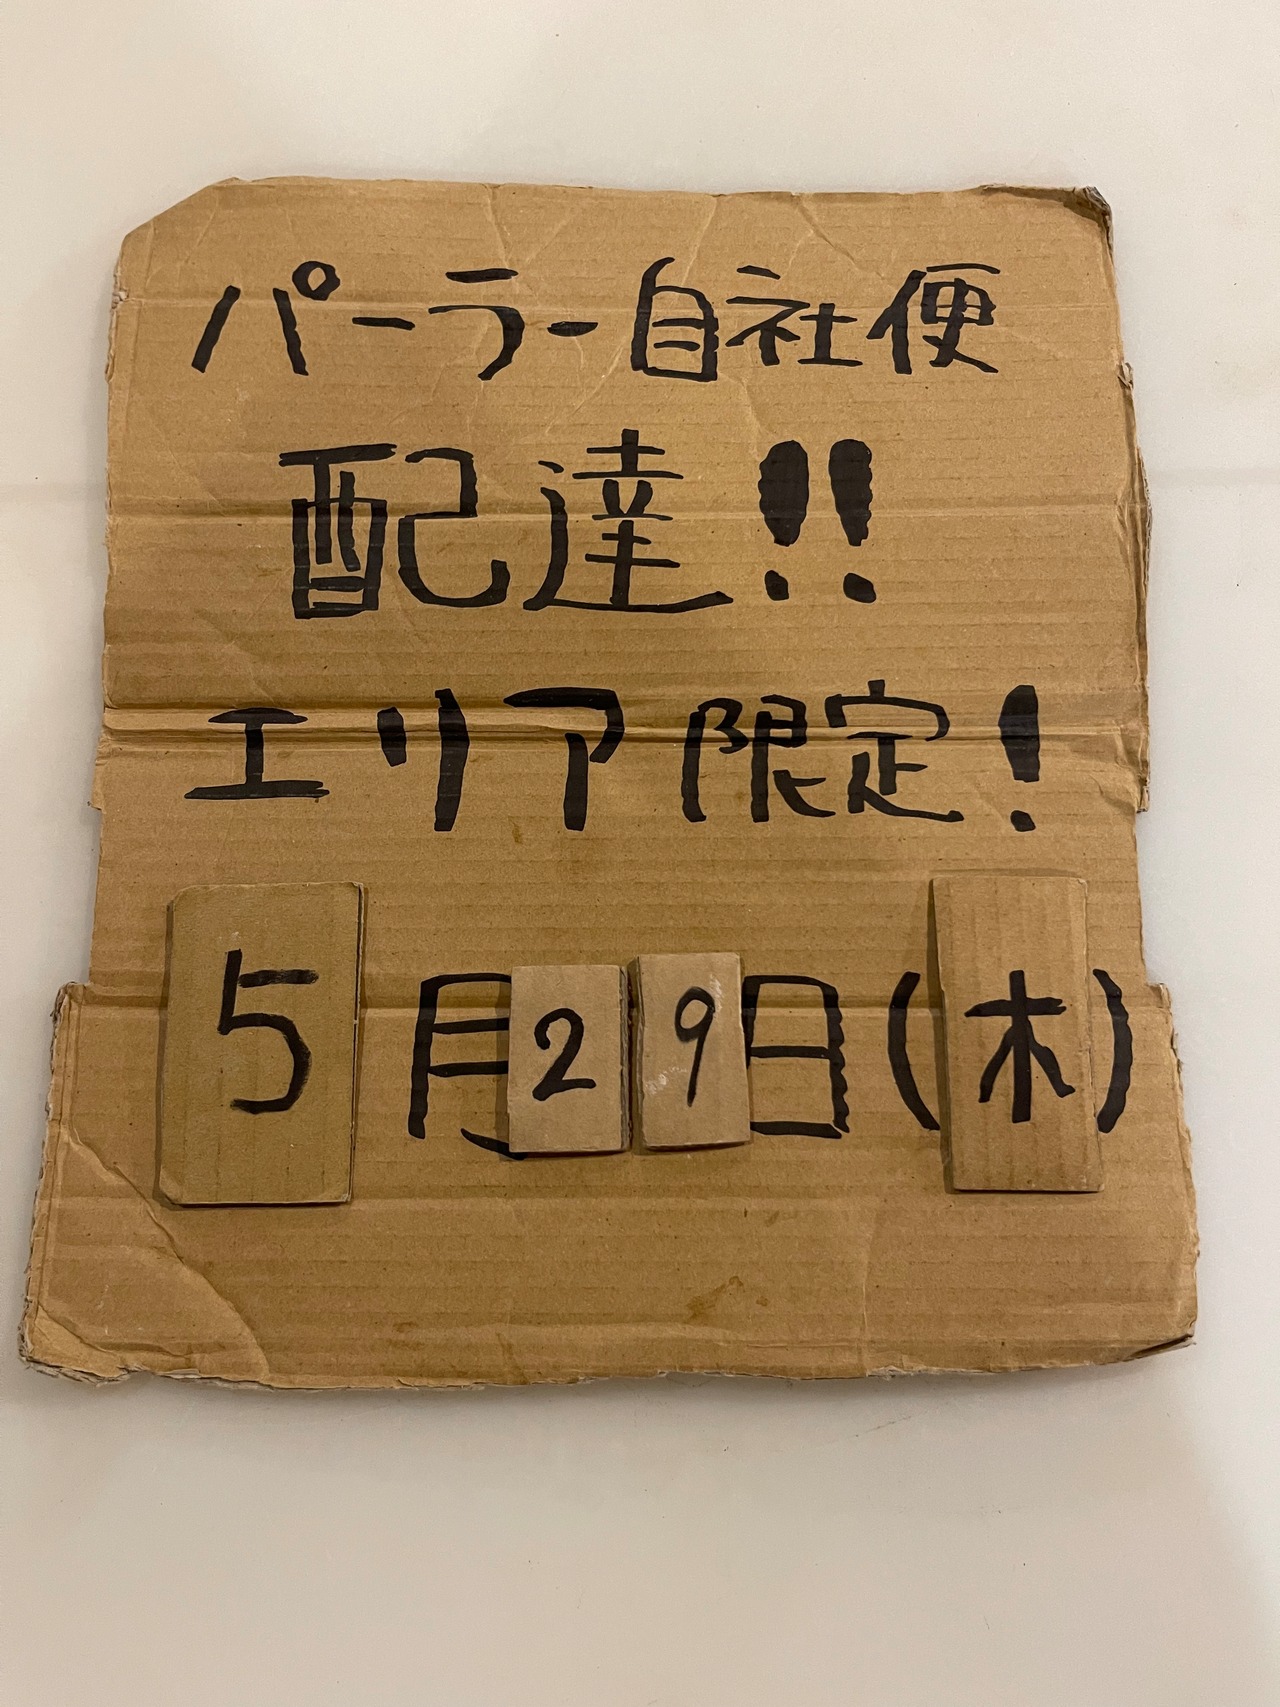 パーラー自社便
配達!!
エリア限定!
5月29日(木)